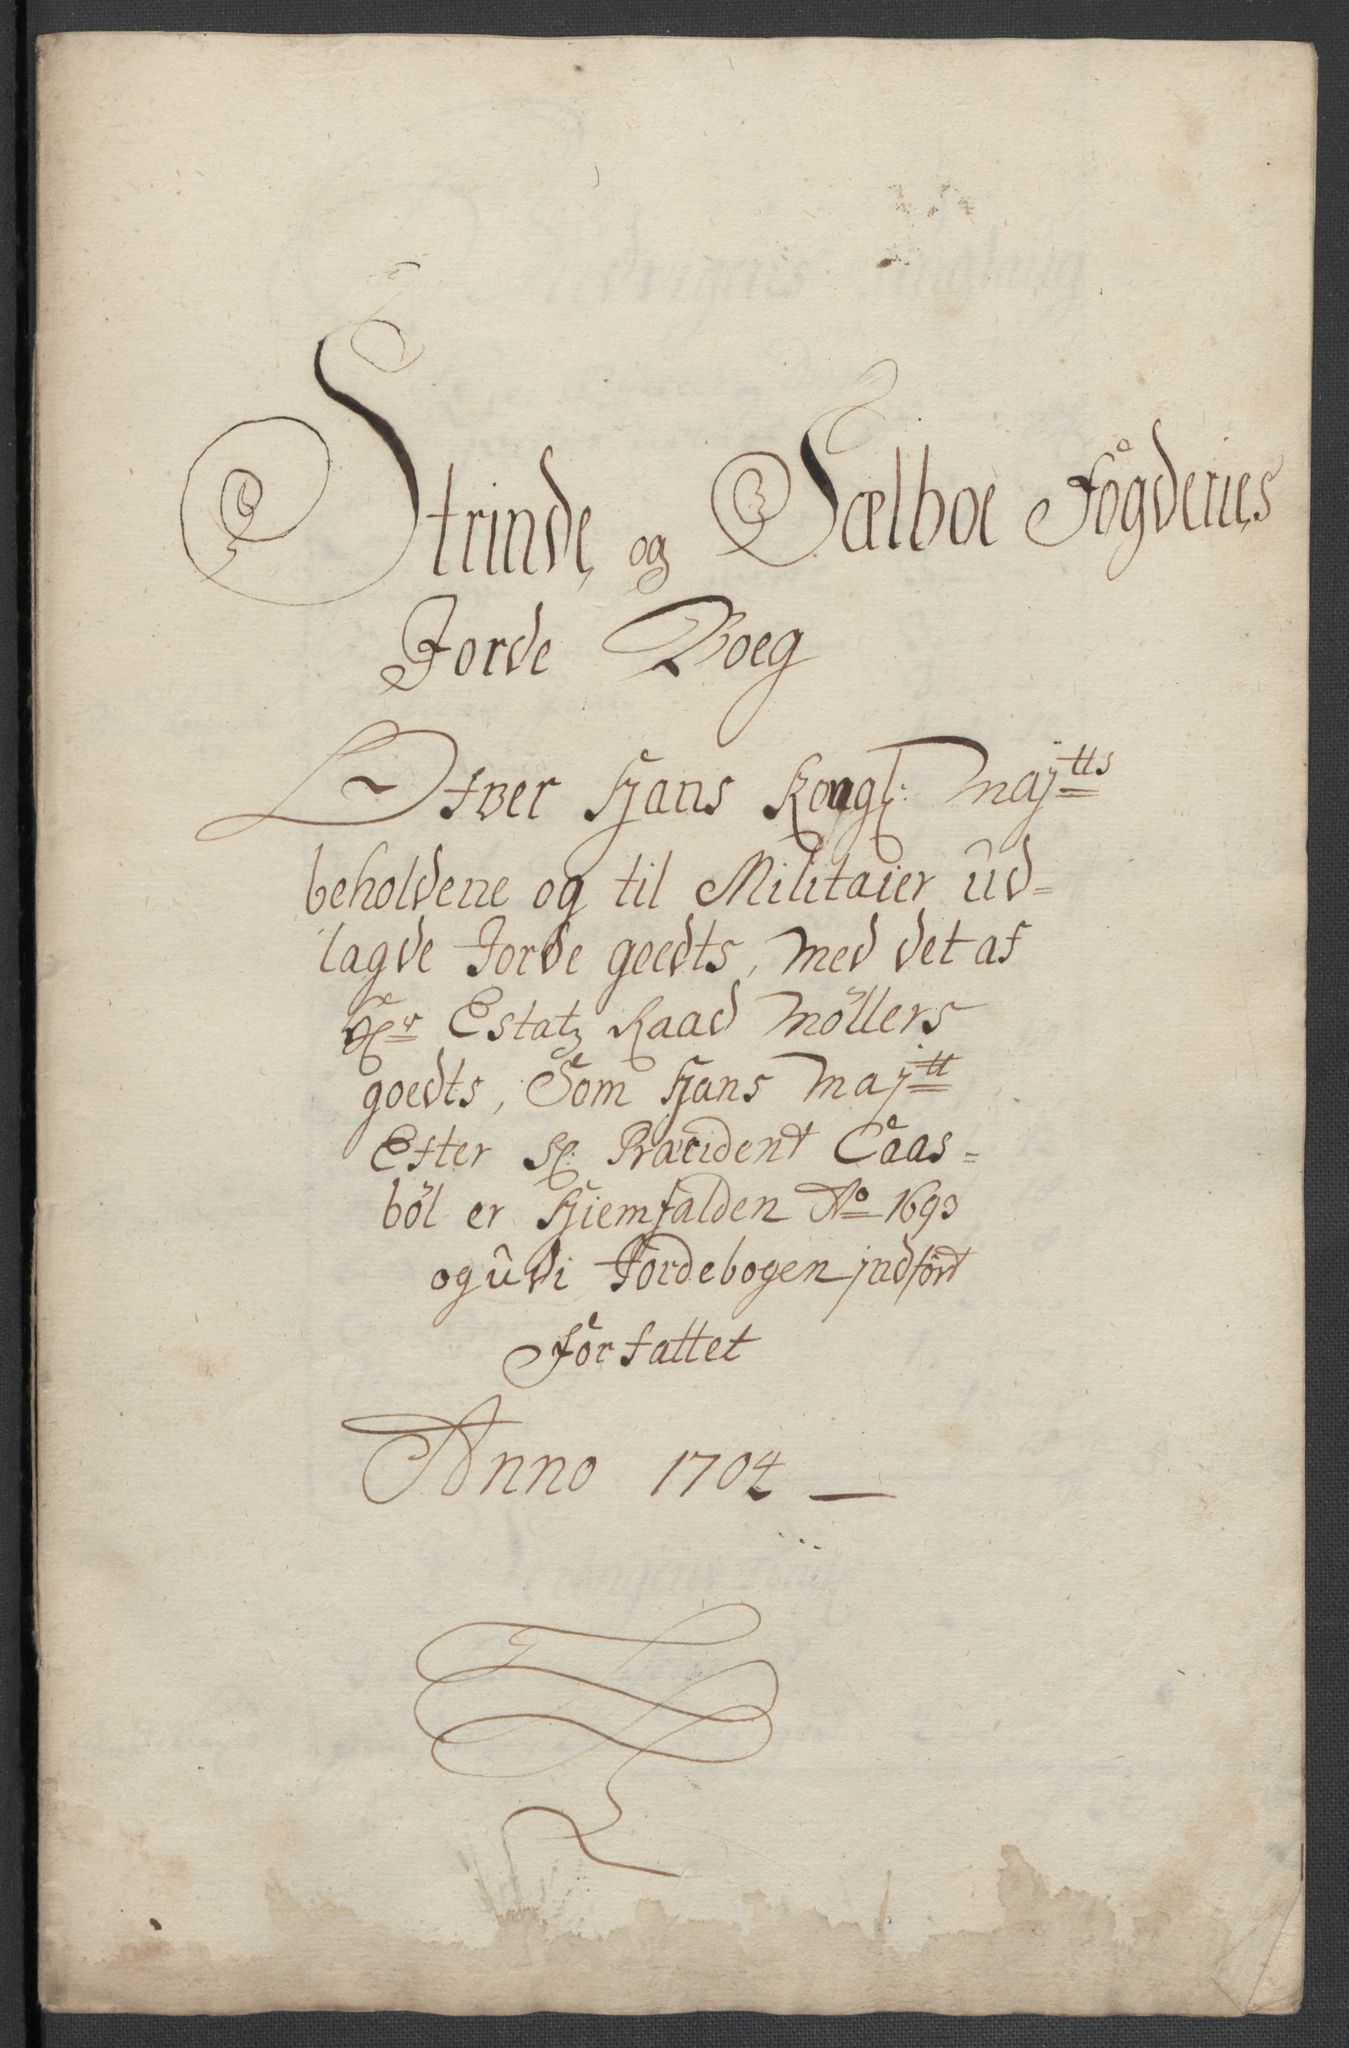 Strinde, og Sælboe Fogderies
Jorde Boeg
Ofver Hans Kongl: Maj:tts
beholdene og til Militaier ud-
lagde Jorde goedts, med det af
Hr Estatz Raad Møllers
goedts, Som Hans Maj:tt
Efter Sl: Præcident Caas-
böl er Hiemfalden Ao 1693
og udi Jordebogen jndförd
Forfattet
Anno 1704